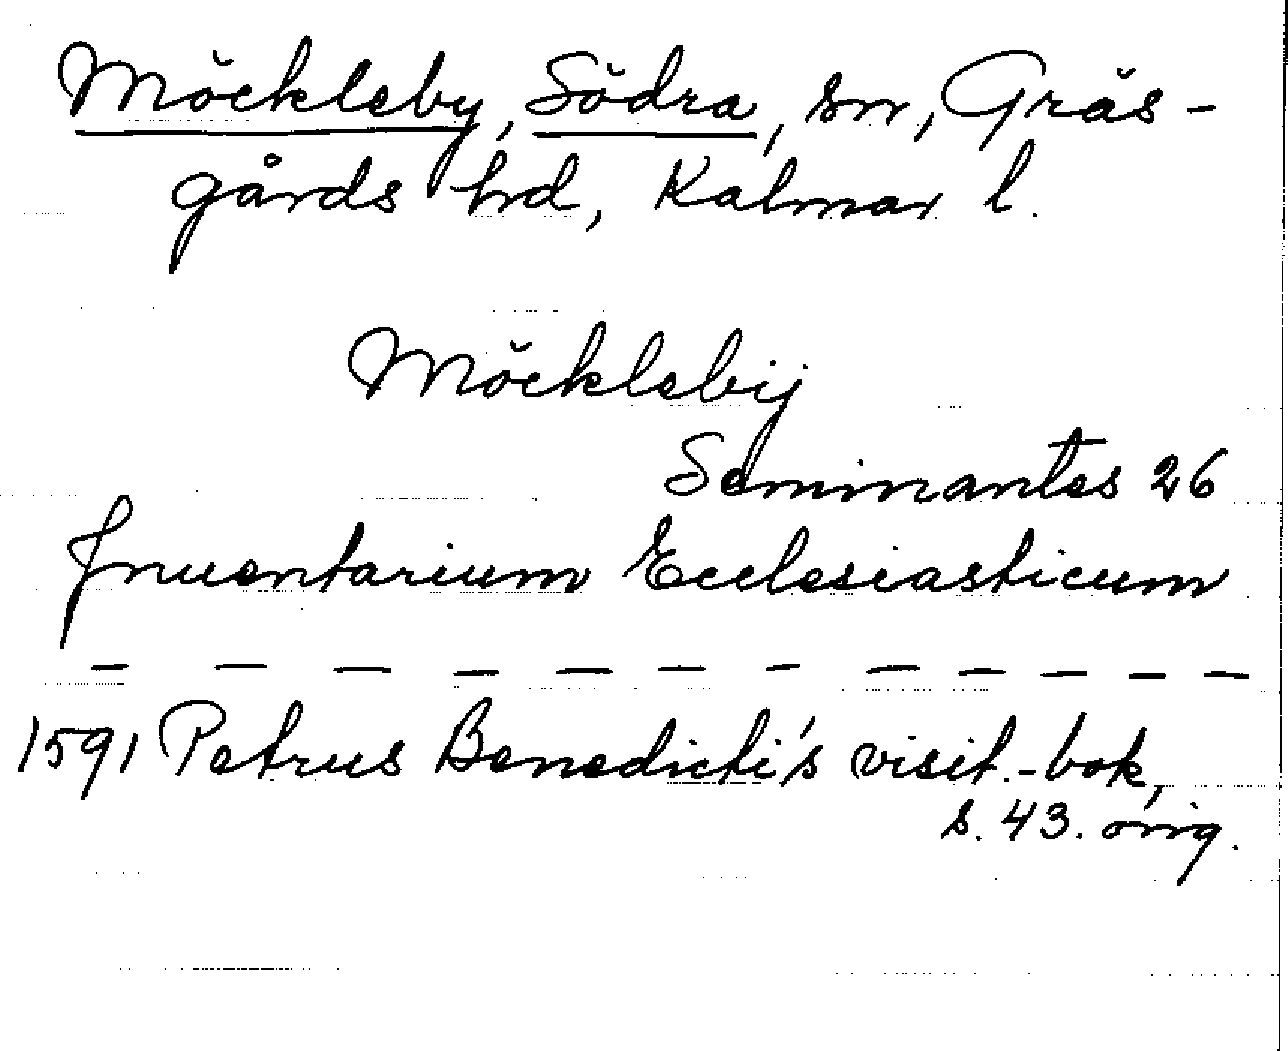 Möckleby, Södra, sn, Gräs-
gårds hd, Kalmar l.
Möcklebij
Seminantes 26
Inuentarium Ecclesiasticum
— — — — — — — — — — — —
1591 Petrus Benedicti's visit.-bok,
s. 43. orig.